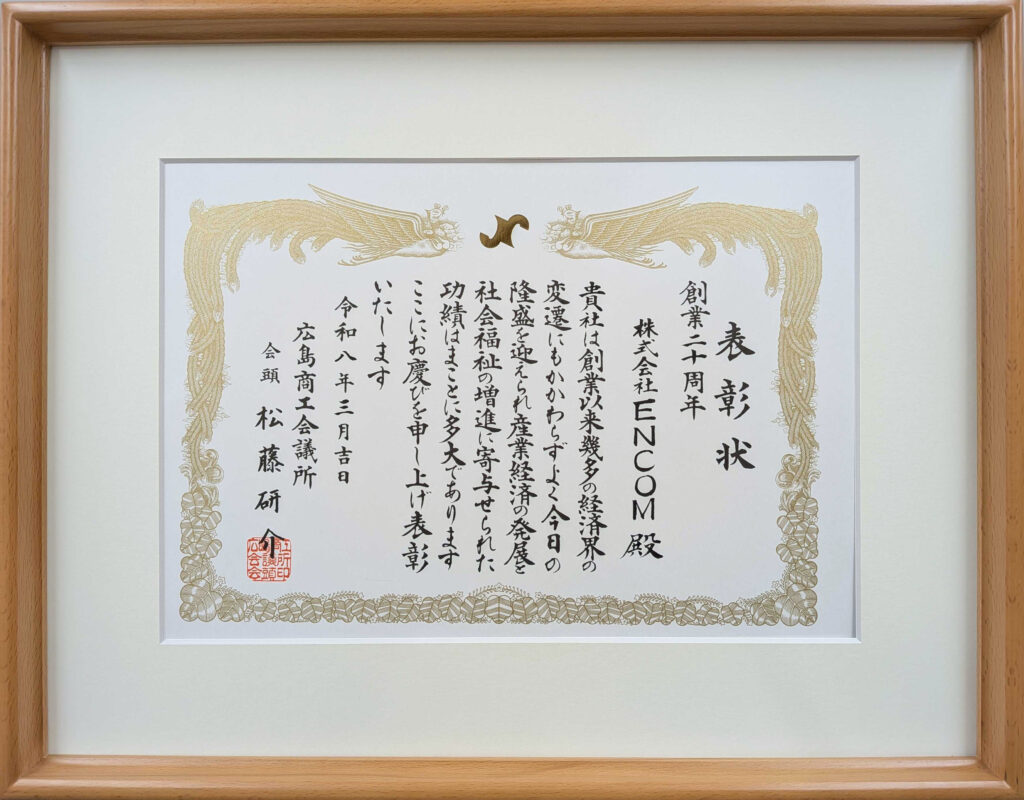 表彰状
創業二十周年
株式会社ENCOM殿
貴社は創業以来幾多の経済界の
変遷にもかかわらずよく今日の
隆盛を迎えられ産業経済の発展と
社会福祉の増進に寄与せられた
功績はまことに多大であります
ここにお慶びを申し上げ表彰
いたします
令和八年三月吉日
広島商工会議所
会頭 松藤研介